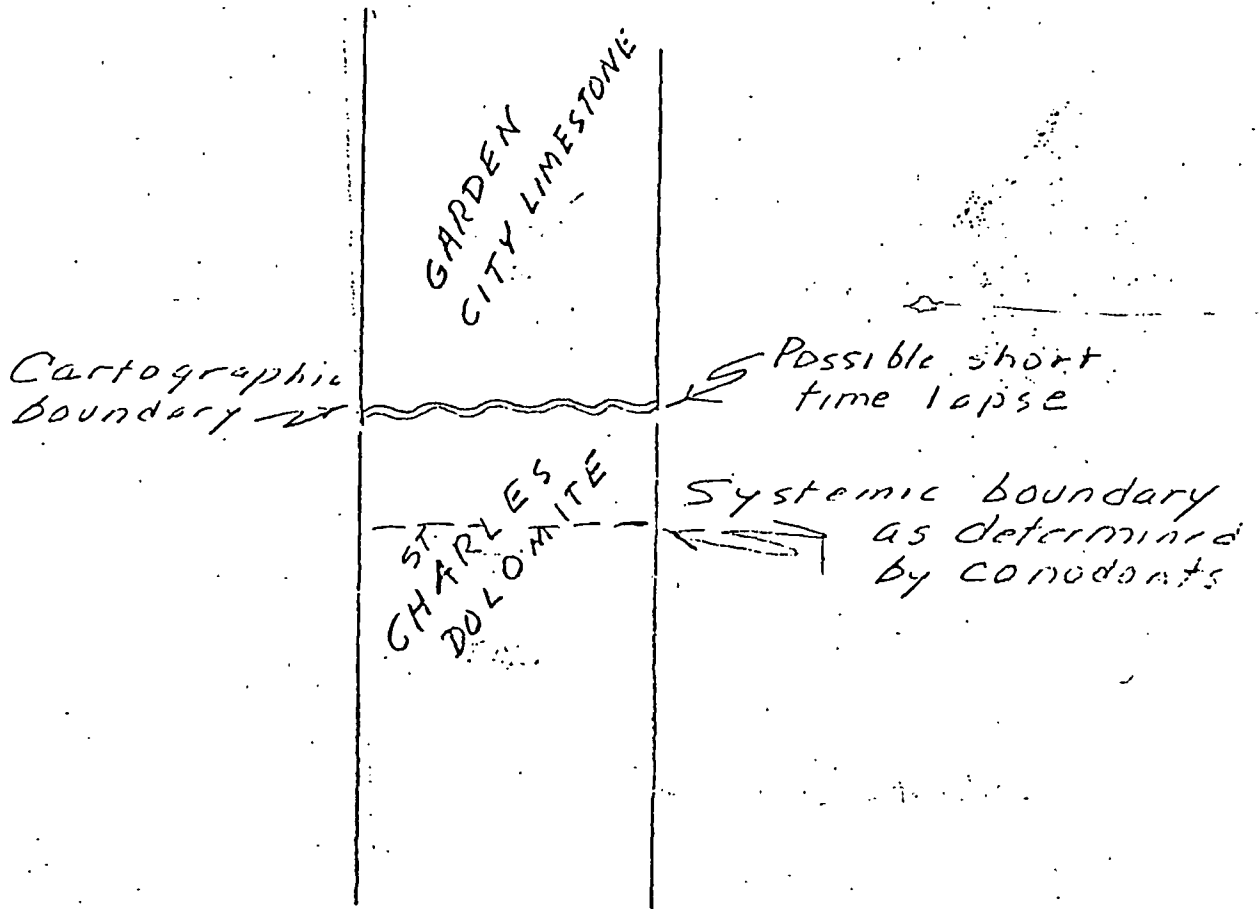 GARDEN
CITY LIMESTONE
Cartographic
boundary
Possible short
time lapse
ST.
CHARLES
DOLOMITE
Systemic boundary
as determined
by conodonts